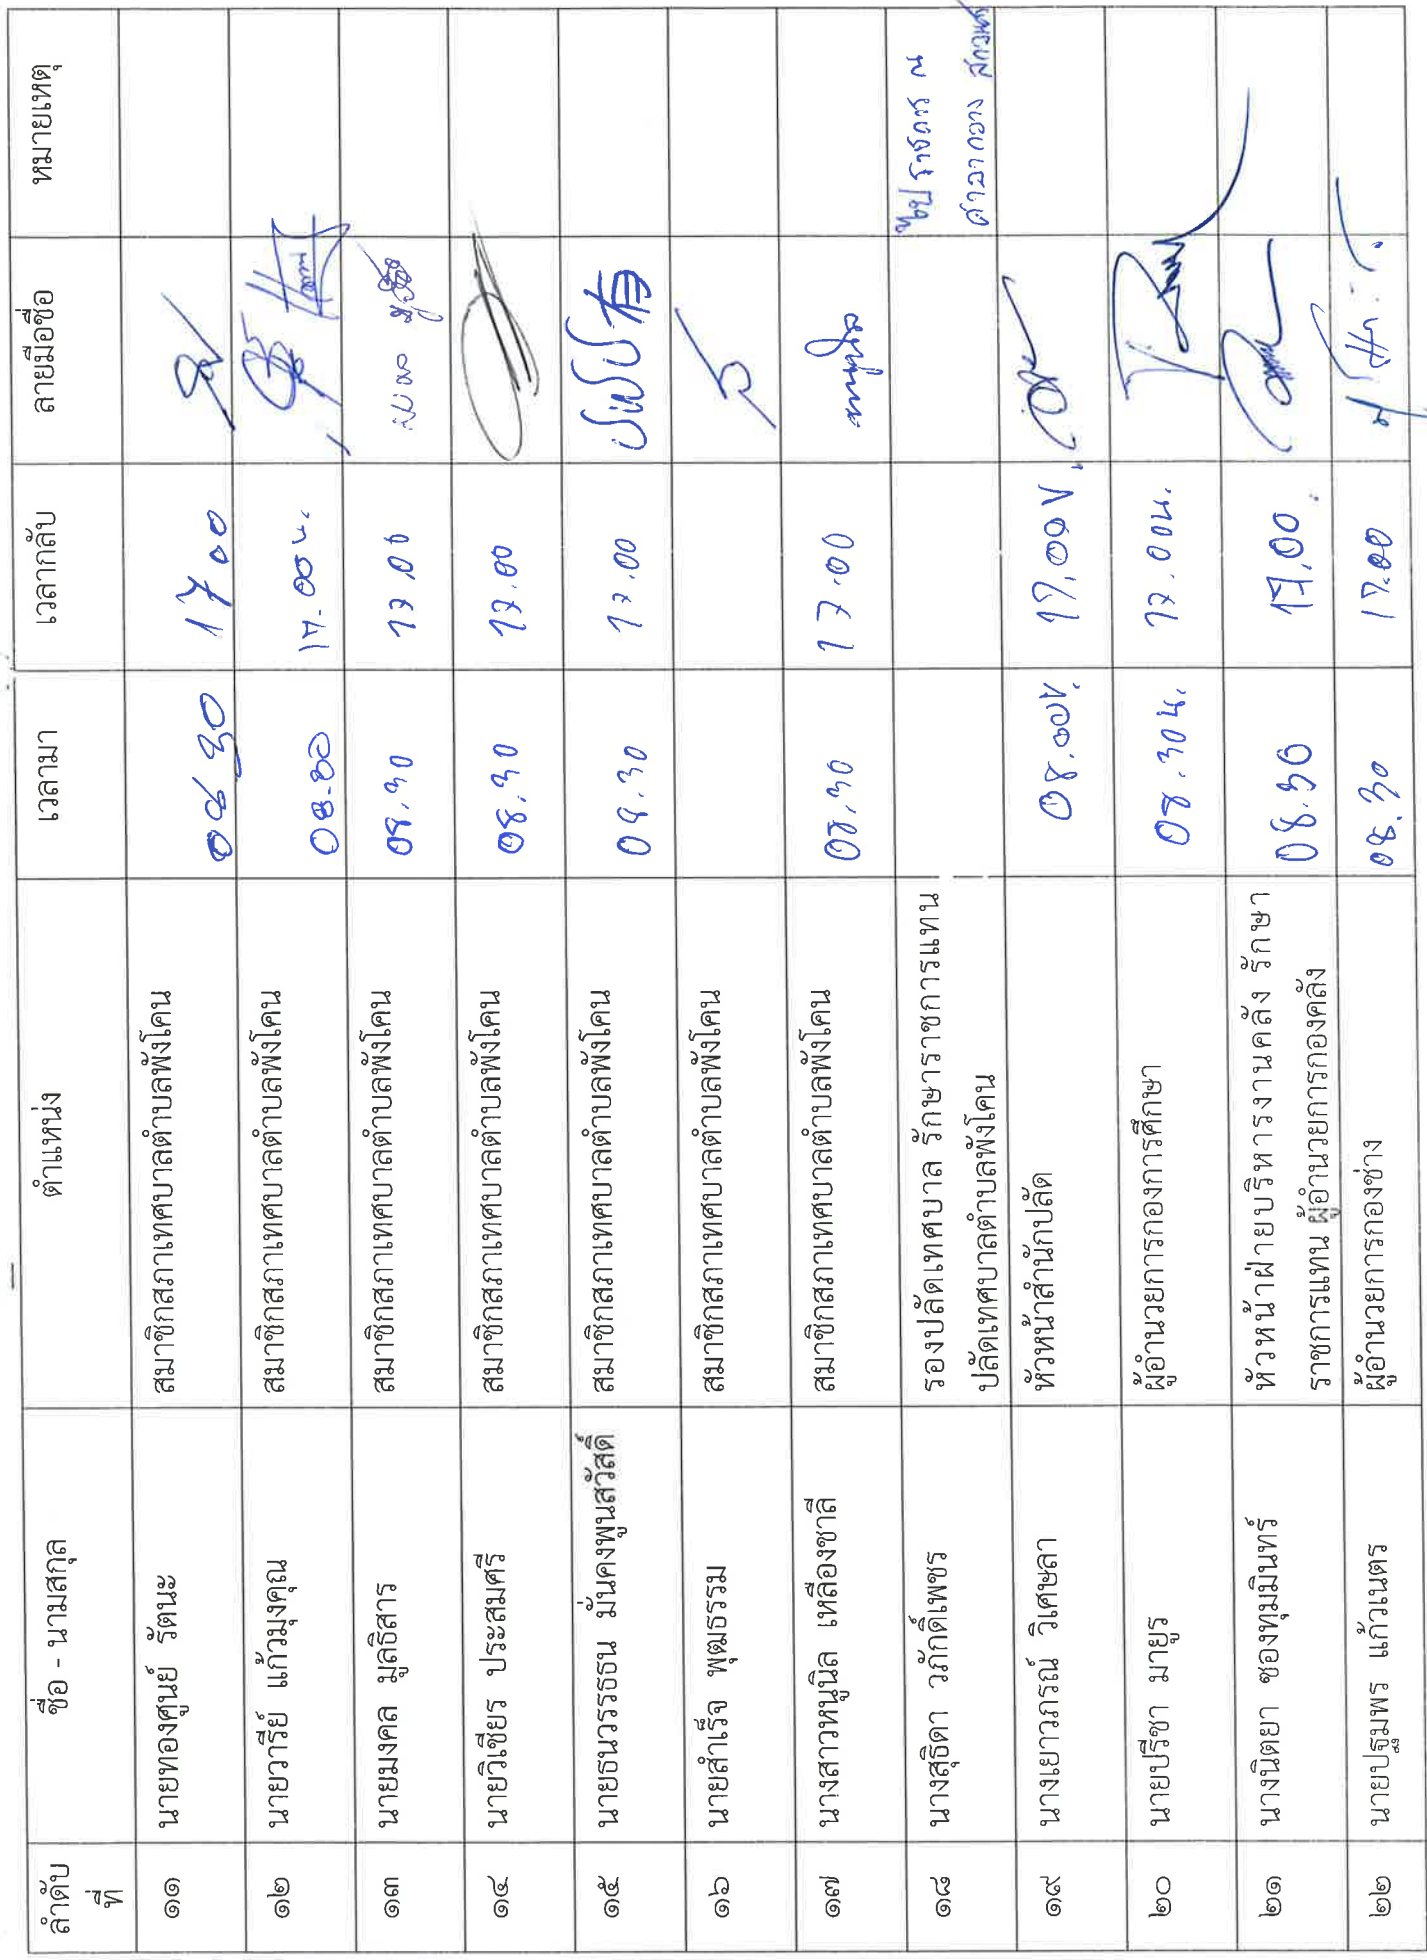 ลำดับที่ ชื่อ - นามสกุล ตำแหน่ง เวลามา เวลากลับ ลายมือชื่อ หมายเหตุ
๑๑ นายทองศูนย์ รัตนะ สมาชิกสภาเทศบาลตำบลพังโคน 08.30 17 00
๑๒ นายวารีย์ แก้วมุงคุณ สมาชิกสภาเทศบาลตำบลพังโคน 08.30 17.00 น.
๑๓ นายมงคล มูลธิสาร สมาชิกสภาเทศบาลตำบลพังโคน 08.30 17.00
๑๔ นายวิเชียร ประสมศรี สมาชิกสภาเทศบาลตำบลพังโคน 08.30 17.00
๑๕ นายธนวรรธธน มั่นคงพูนสวัสดิ์ สมาชิกสภาเทศบาลตำบลพังโคน 08.30 17.00
๑๖ นายสำเร็จ พุฒธรรม สมาชิกสภาเทศบาลตำบลพังโคน
๑๗ นางสาวหนูนิล เหลืองชาลี สมาชิกสภาเทศบาลตำบลพังโคน 08.30 17.00
๑๘ นางสุธิดา วภักดิ์เพชร รองปลัดเทศบาล รักษาราชการแทน ไปราชการ ณ
ปลัดเทศบาลตำบลพังโคน ศาลากลาง
๑๙ นางเยาวภรณ์ วิเศษลา หัวหน้าสำนักปลัด 08.00น. 17.00น.
๒๐ นายปรีชา มายูร ผู้อำนวยการกองการศึกษา 08.30น. 17.00น.
๒๑ นางนิตยา ซองทุมมินทร์ หัวหน้าฝ่ายบริหารงานคลัง รักษา 08.30 17.00
ราชการแทน ผู้อำนวยการกองคลัง
๒๒ นายปฐมพร แก้วเนตร ผู้อำนวยการกองช่าง 08.30 17.00